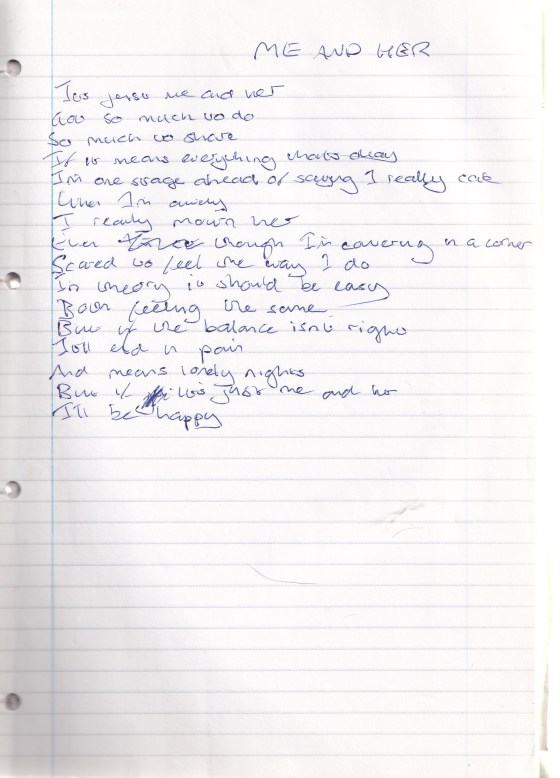 ME AND HER
Its just me and her
Got so much to do
So much to share
If it means everything thats okay
I'm one stage ahead of saying I really care
When I'm away
I really mourn her
Even though I'm cowering in a corner
Scared to feel the way I do
In theory it should be easy
Both feeling the same
But if the balance isnt right
Itll end in pain
And means lonely nights
But if its just me and her
I'll be happy